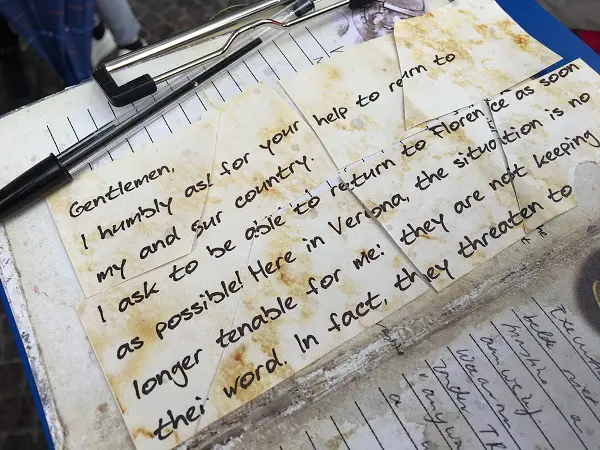 Gentlemen,
I humbly ask for your help to rern to
my and sur country.
I ask to be able to return to Florence as soon
as possible! Here in Verona, the situation is no
longer tenable for me: they are not keeping
thei word. In fact, they threaten to
anyway
a